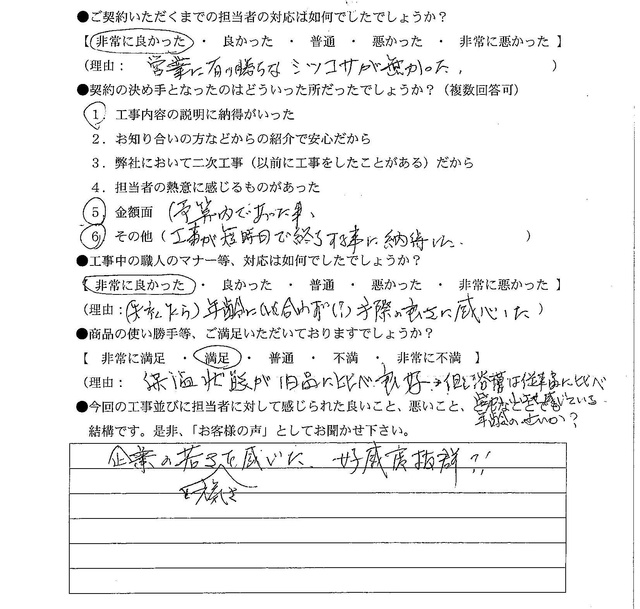 ●ご契約いただくまでの担当者の対応は如何でしたでしょうか？
【 非常に良かった ・ 良かった ・ 普通 ・ 悪かった ・ 非常に悪かった 】
（理由： 営業に有り勝ちな シツコサが無かった. ）
●契約の決め手となったのはどういった所だったでしょうか？（複数回答可）
１．工事内容の説明に納得がいった
２．お知り合いの方などからの紹介で安心だから
３．弊社において二次工事（以前に工事をしたことがある）だから
４．担当者の熱意に感じるものがあった
５．金額面 （予算内であった事、
６．その他（工事が短時日で終了する事に納得した.
●工事中の職人のマナー等、対応は如何でしたでしょうか？
【 非常に良かった ・ 良かった ・ 普通 ・ 悪かった ・ 非常に悪かった 】
（理由： 年齢に似合わず(!) 手際の良さに感心した ）
●商品の使い勝手等、ご満足いただいておりますでしょうか？
【 非常に満足 ・ 満足 ・ 普通 ・ 不満 ・ 非常に不満 】
（理由： 保温状態が旧品に比べ良好 但し浴槽は従来品に比べ
感じている.
年齢のせいか？
●今回の工事並びに担当者に対して感じられた良いこと、悪いこと、どんなことでも
結構です。是非、「お客様の声」としてお聞かせ下さい。
企業の若さを感じた. 好感度抜群!!